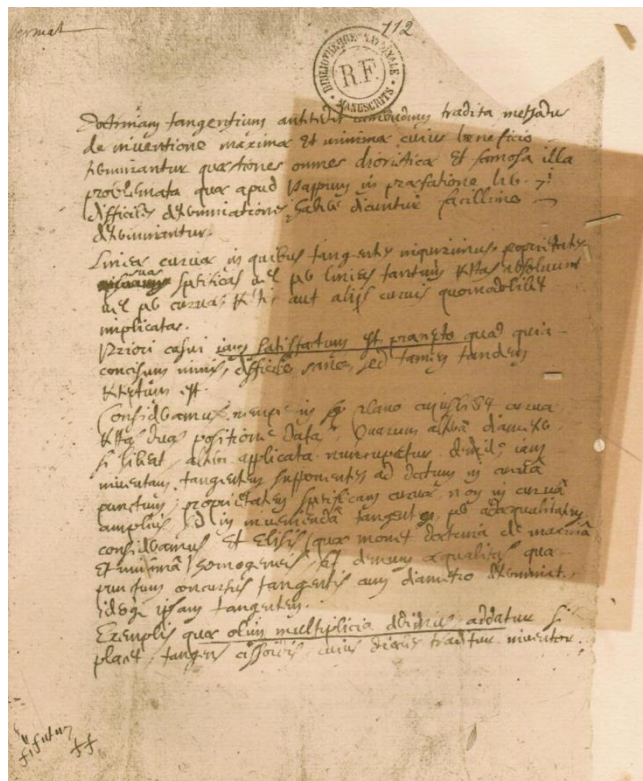 fermat
112
BIBLIOTHEQUE NATIONALE
R.F.
MANUSCRITS
Doctrinam tangentium antecedit tradita methodus
de inventione maximæ et minimæ cuius beneficio
terminantur quæstiones omnes dioristicæ et famosa illa
problemata quæ apud Pappum in præfatione lib. 7i
difficiles determinationes habere dicuntur facillime
determinantur.
Lineæ curvæ in quibus tangentes inquirimus proprietates
suas specificas vel per lineas tantum rectas absolvunt
vel per curvas rectis aut aliis curvis quomodolibet
implicatas.
Priori casui iam satisfactum est præcepto quod quia
concisum nimis, difficile sane, sed tamen tandem
repertum est.
Consideramus nempe in plano cuiuslibet curvæ
rectas duas positione datas quarum altera diameter
si libeat, altera applicata nuncupetur. deinde iam
inventam tangentem supponentes ad datum in curva
punctum, proprietatem specificam curvæ non in curva
amplius sed in invenienda tangente per adæqualitatem
consideramus et elisis quæ monet doctrina de maxima
et minima homogeneis fit demum æqualitas quæ
punctum concursus tangentis cum diametro determinat
ideoque ipsam tangentem.
Exemplis quæ olim multiplicia dedimus addatur si
placet tangens cissoidis cuius Diocles traditur inventor